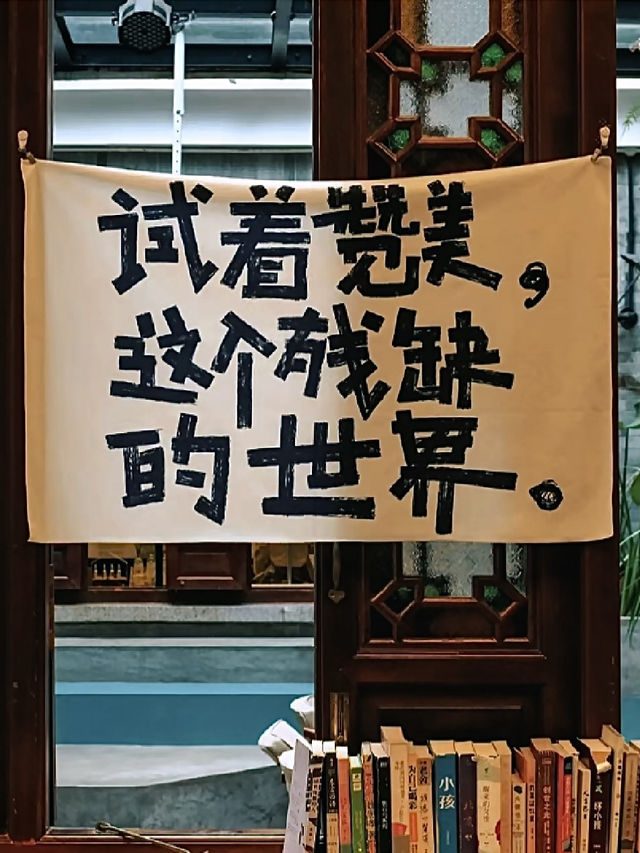 试着赞美，
这个残缺
的世界。
小孩